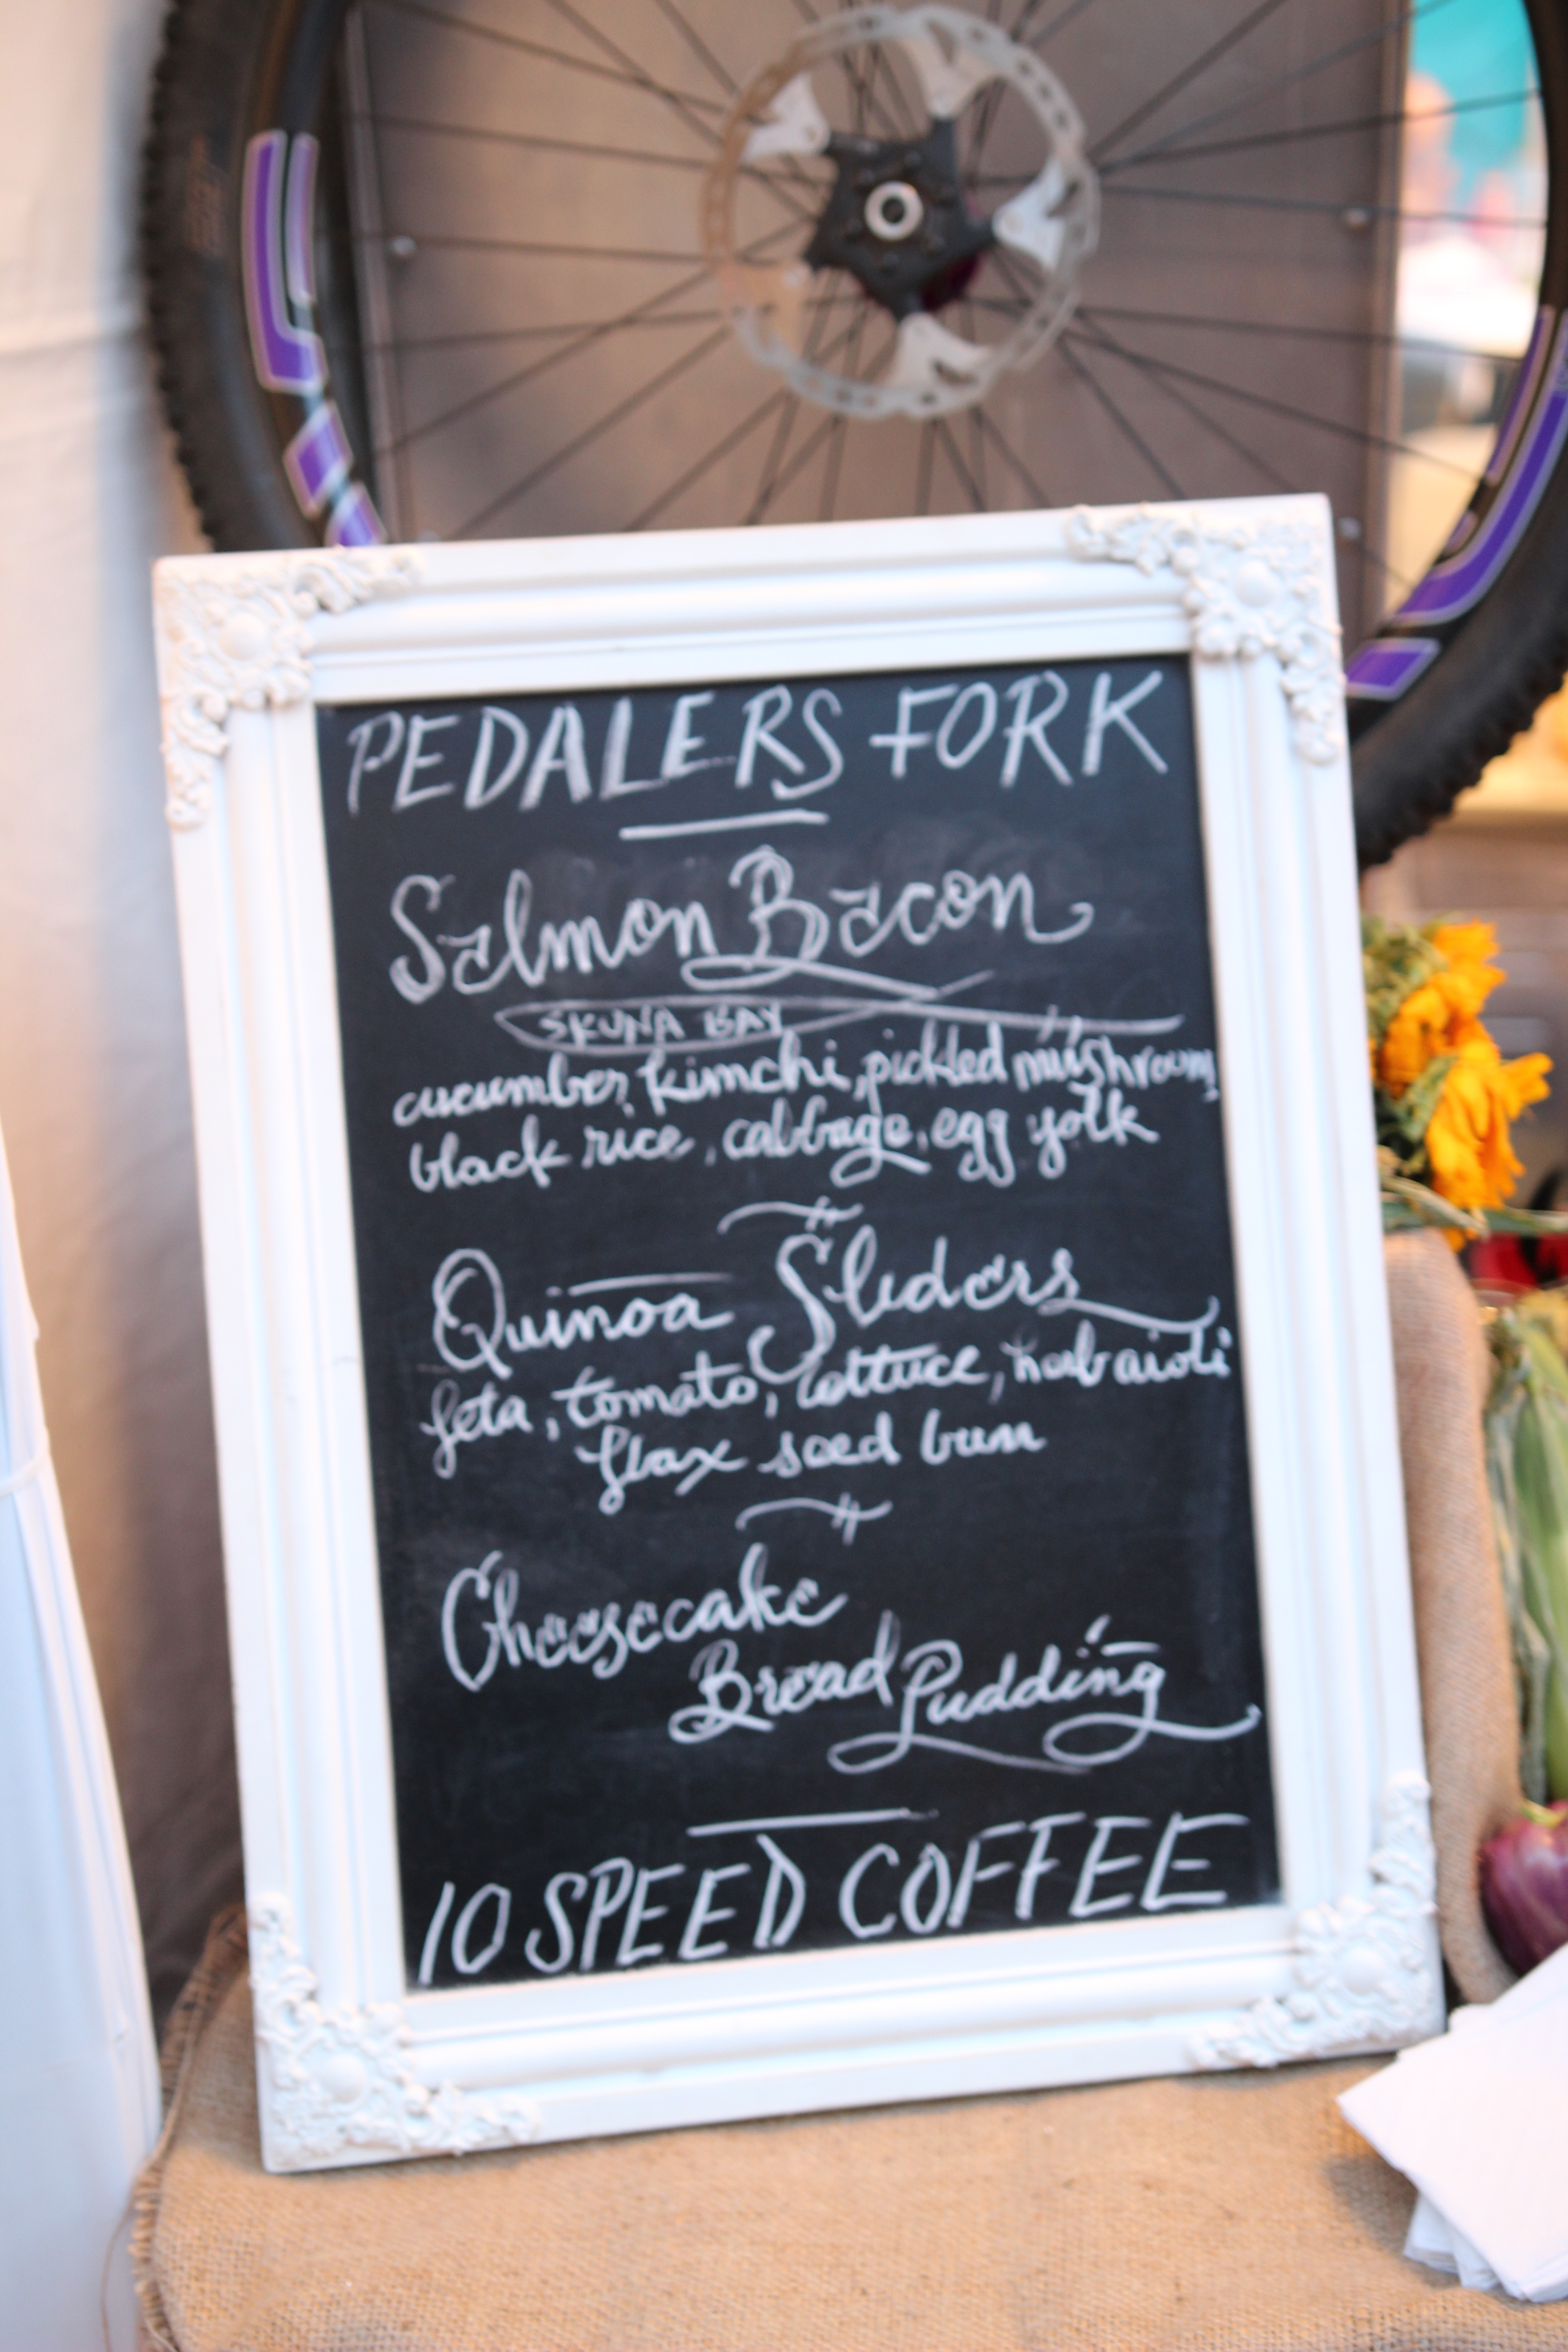 PEDALERS FORK
Salmon Bacon
SKUNA BAY
cucumber kimchi, pickled mushroom,
black rice, cabbage, egg yolk
Quinoa Sliders
feta, tomato, lettuce, herb aioli
flax seed bun
Cheesecake
Bread Pudding
10 SPEED COFFEE